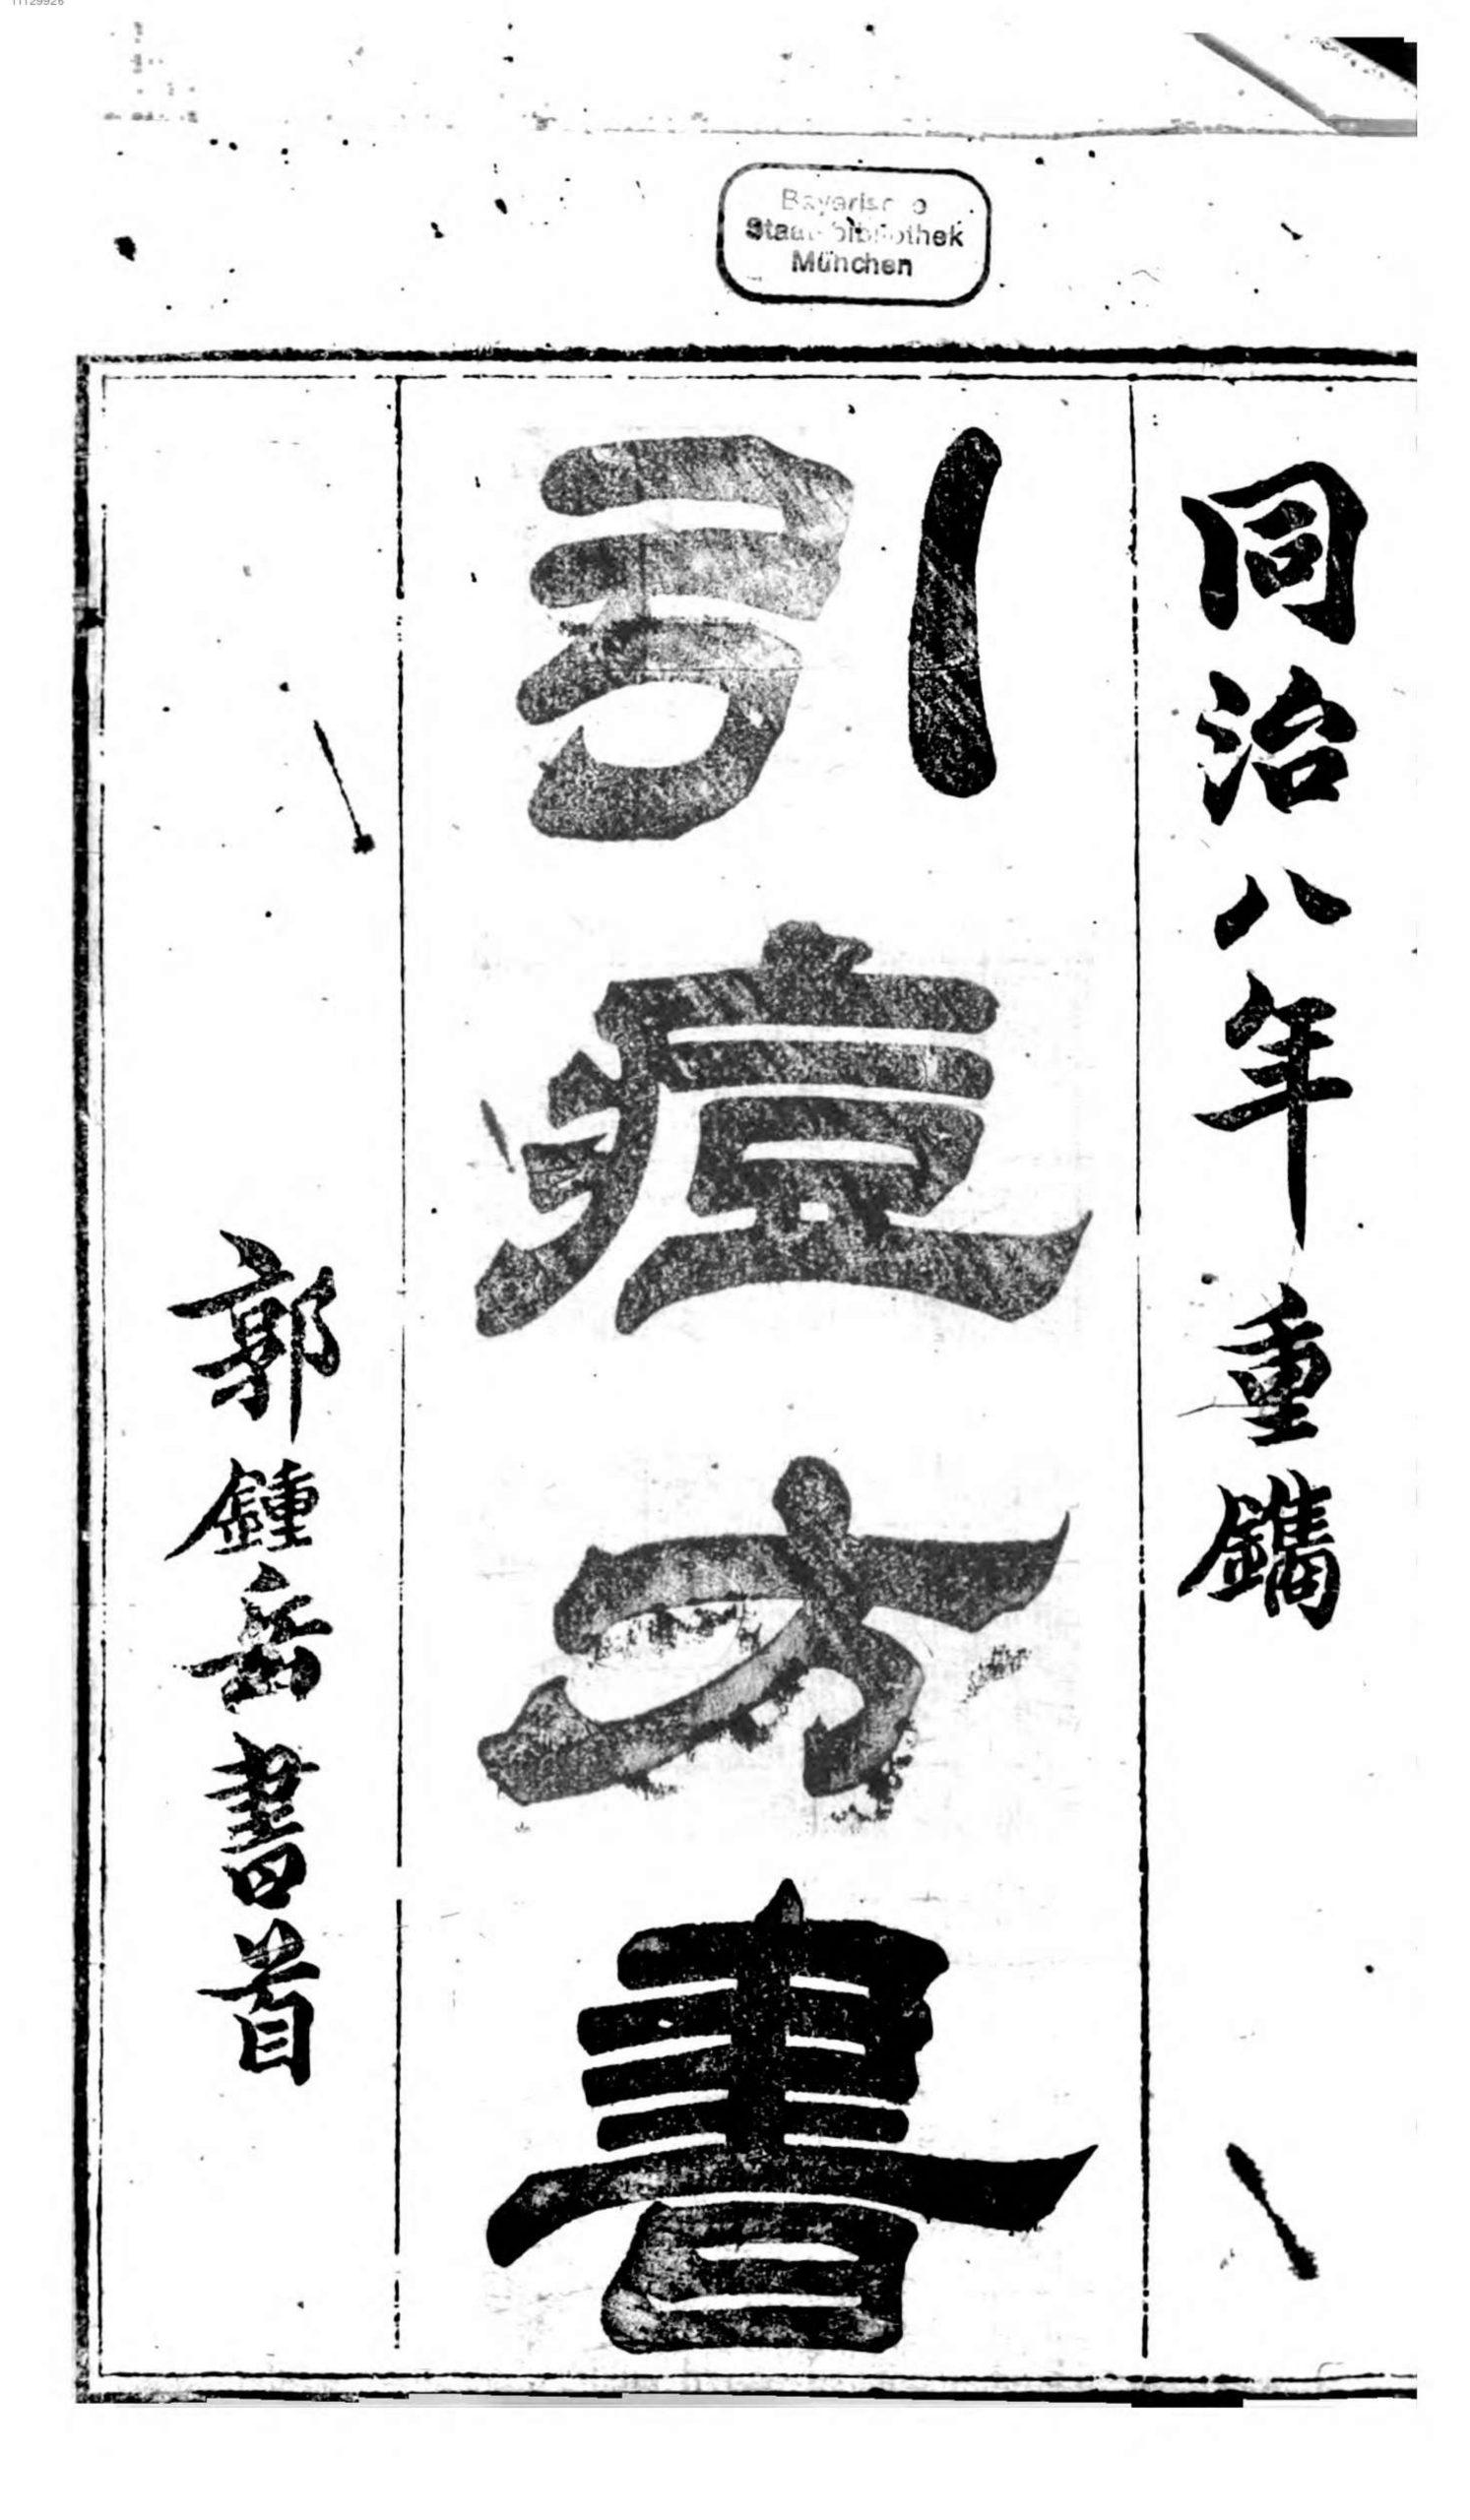 11129926
Bayerische
Staatsbibliothek
München
同治八年重鐫
引痘方書
郭鍾岳書首